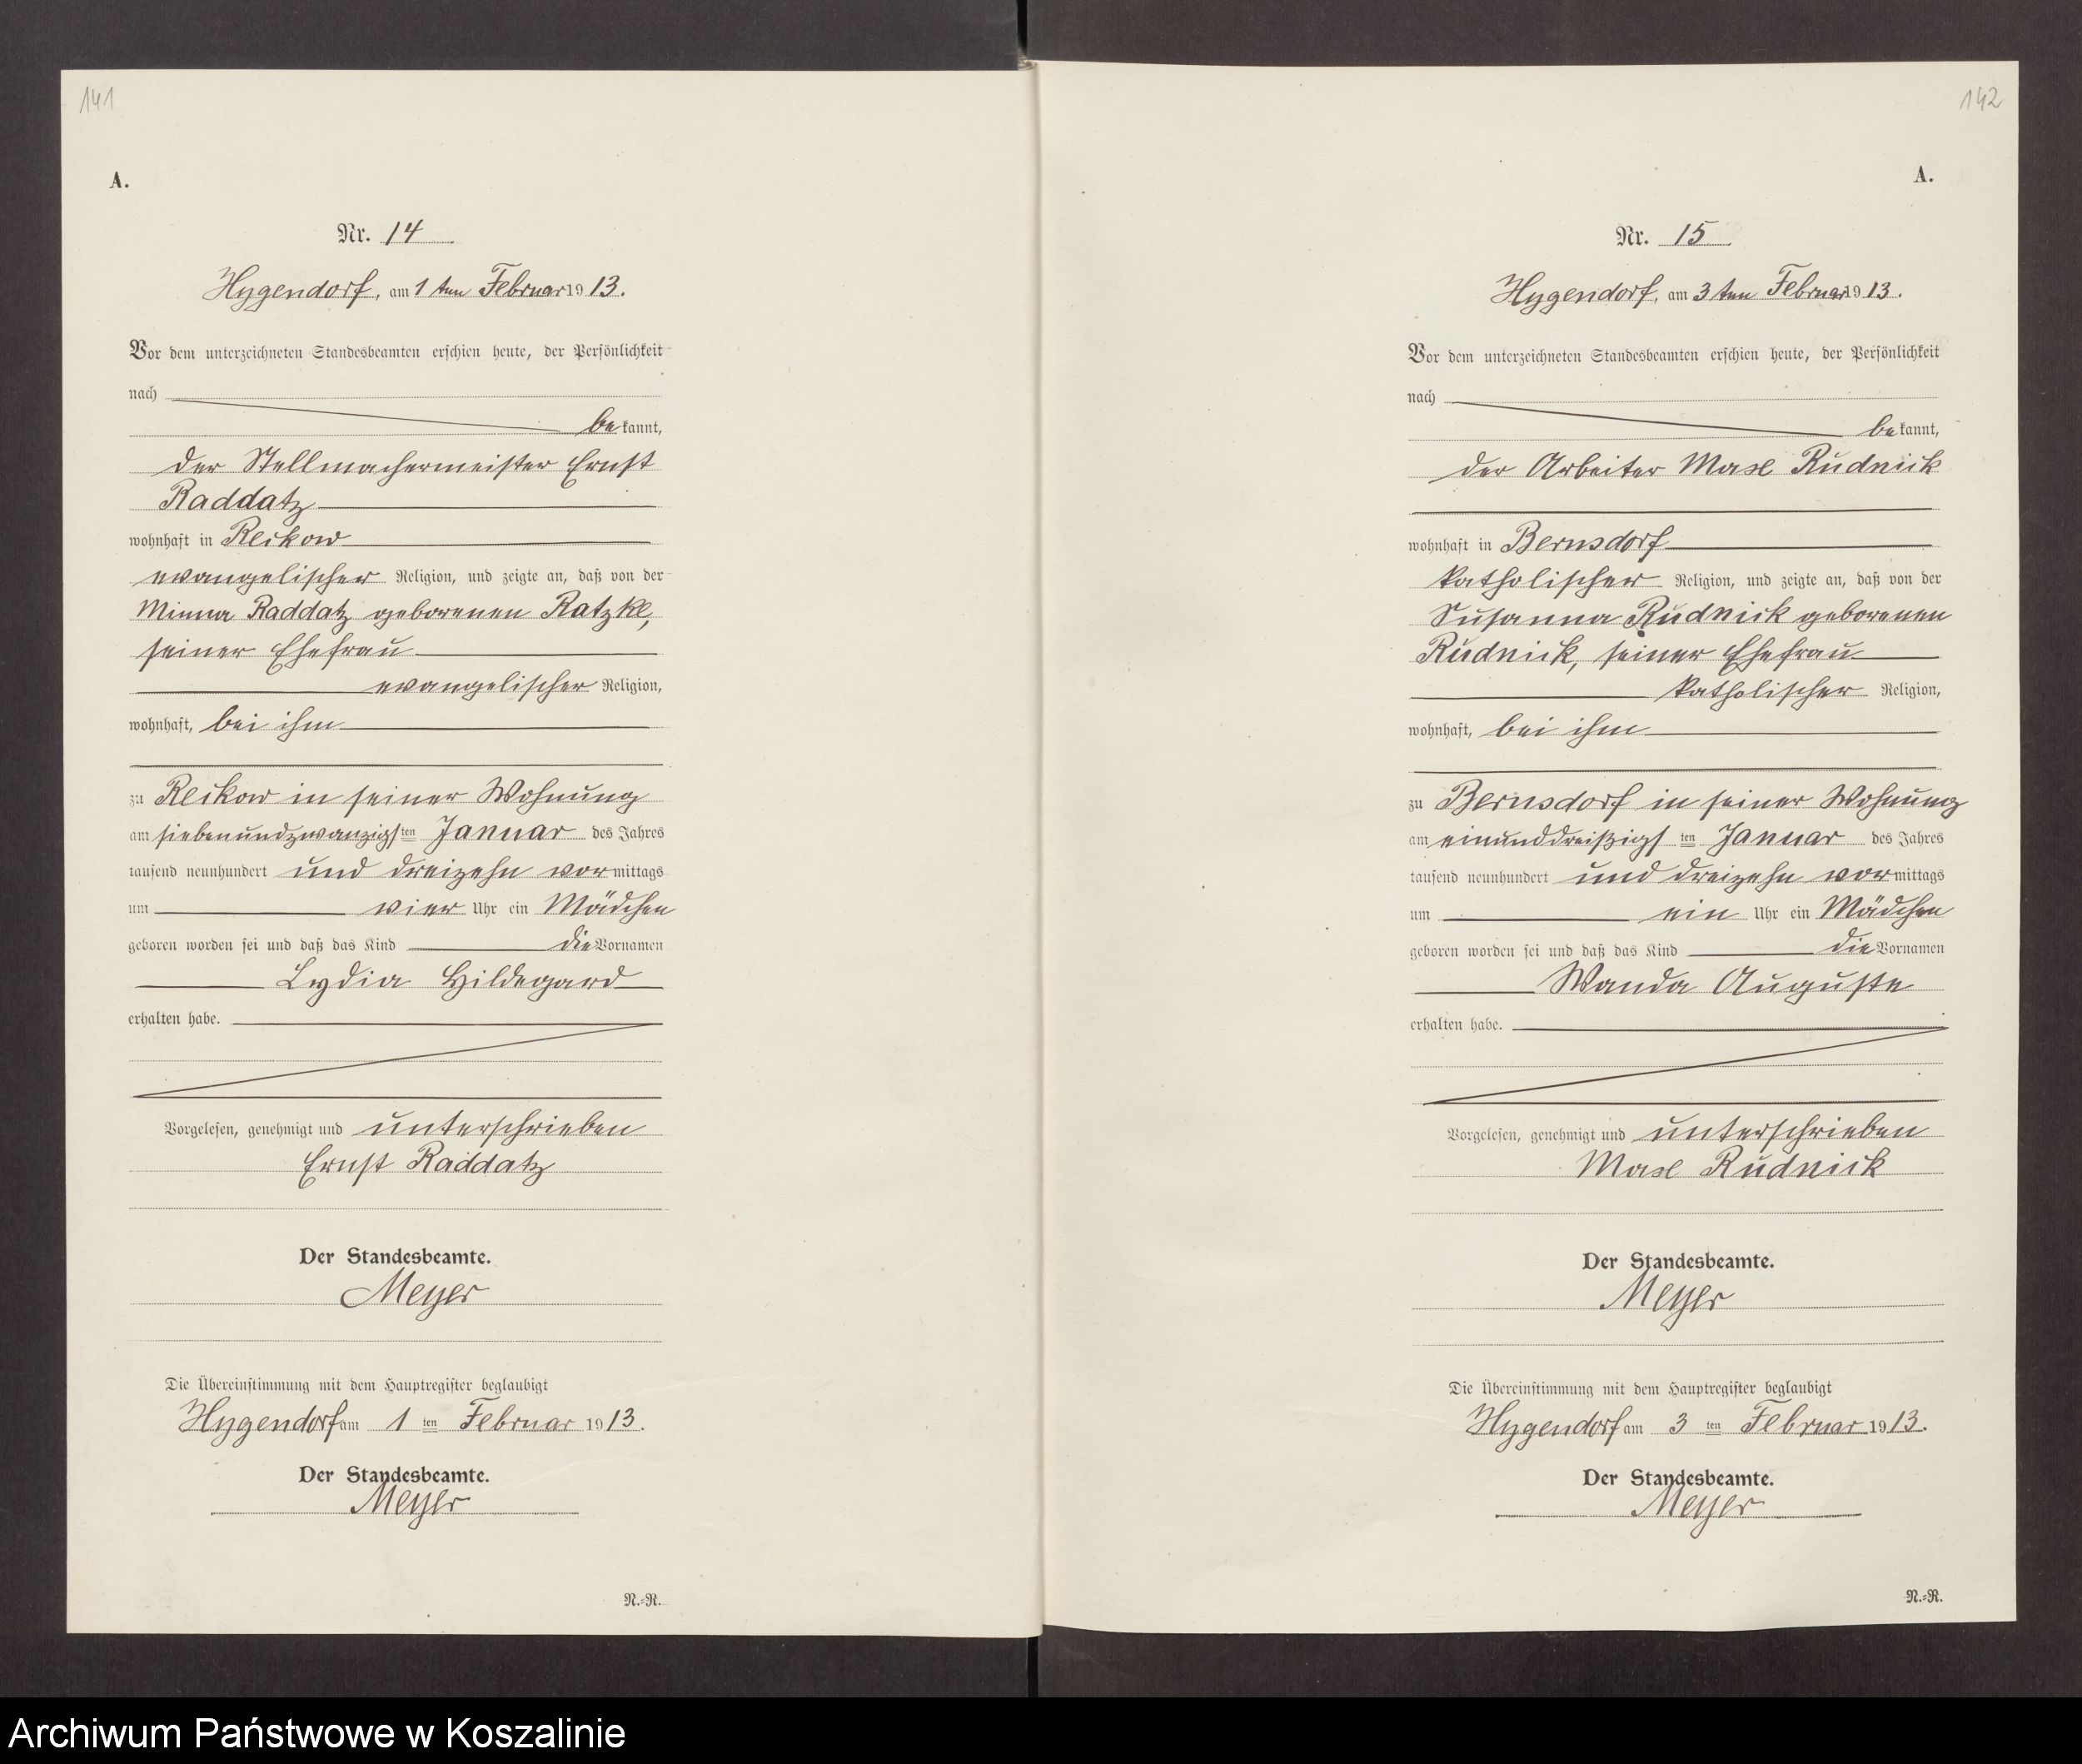 141
A.
Nr. 14
Hygendorf, am 1 ten Februar 1913.
Vor dem unterzeichneten Standesbeamten erschien heute, der Persönlichkeit
nach
bekannt,
der Stellmachermeister Ernst
Raddatz
wohnhaft in Reckow
evangelischer Religion, und zeigte an, daß von der
Minna Raddatz geborenen Ratzke,
seiner Ehefrau
evangelischer Religion,
wohnhaft, bei ihm
zu Reckow in seiner Wohnung
am siebenundzwanzigsten Januar des Jahres
tausend neunhundert und dreizehn vormittags
um vier Uhr ein Mädchen
geboren worden sei und daß das Kind die Vornamen
Lydia Hildegard
erhalten habe.
Vorgelesen, genehmigt und unterschrieben
Ernst Raddatz
Der Standesbeamte.
Meyer
Die Übereinstimmung mit dem Hauptregister beglaubigt
Hygendorf am 1 ten Februar 1913.
Der Standesbeamte.
Meyer
N.-R.
142
A.
Nr. 15
Hygendorf, am 3 ten Februar 1913.
Vor dem unterzeichneten Standesbeamten erschien heute, der Persönlichkeit
nach
bekannt,
der Arbeiter Max Rudnick
wohnhaft in Bernsdorf
katholischer Religion, und zeigte an, daß von der
Susanna Rudnick geborenen
Rudnick, seiner Ehefrau
katholischer Religion,
wohnhaft, bei ihm
zu Bernsdorf in seiner Wohnung
am einunddreißigsten Januar des Jahres
tausend neunhundert und dreizehn vormittags
um ein Uhr ein Mädchen
geboren worden sei und daß das Kind die Vornamen
Wanda Auguste
erhalten habe.
Vorgelesen, genehmigt und unterschrieben
Max Rudnick
Der Standesbeamte.
Meyer
Die Übereinstimmung mit dem Hauptregister beglaubigt
Hygendorf am 3 ten Februar 1913.
Der Standesbeamte.
Meyer
N.-R.
Archiwum Państwowe w Koszalinie